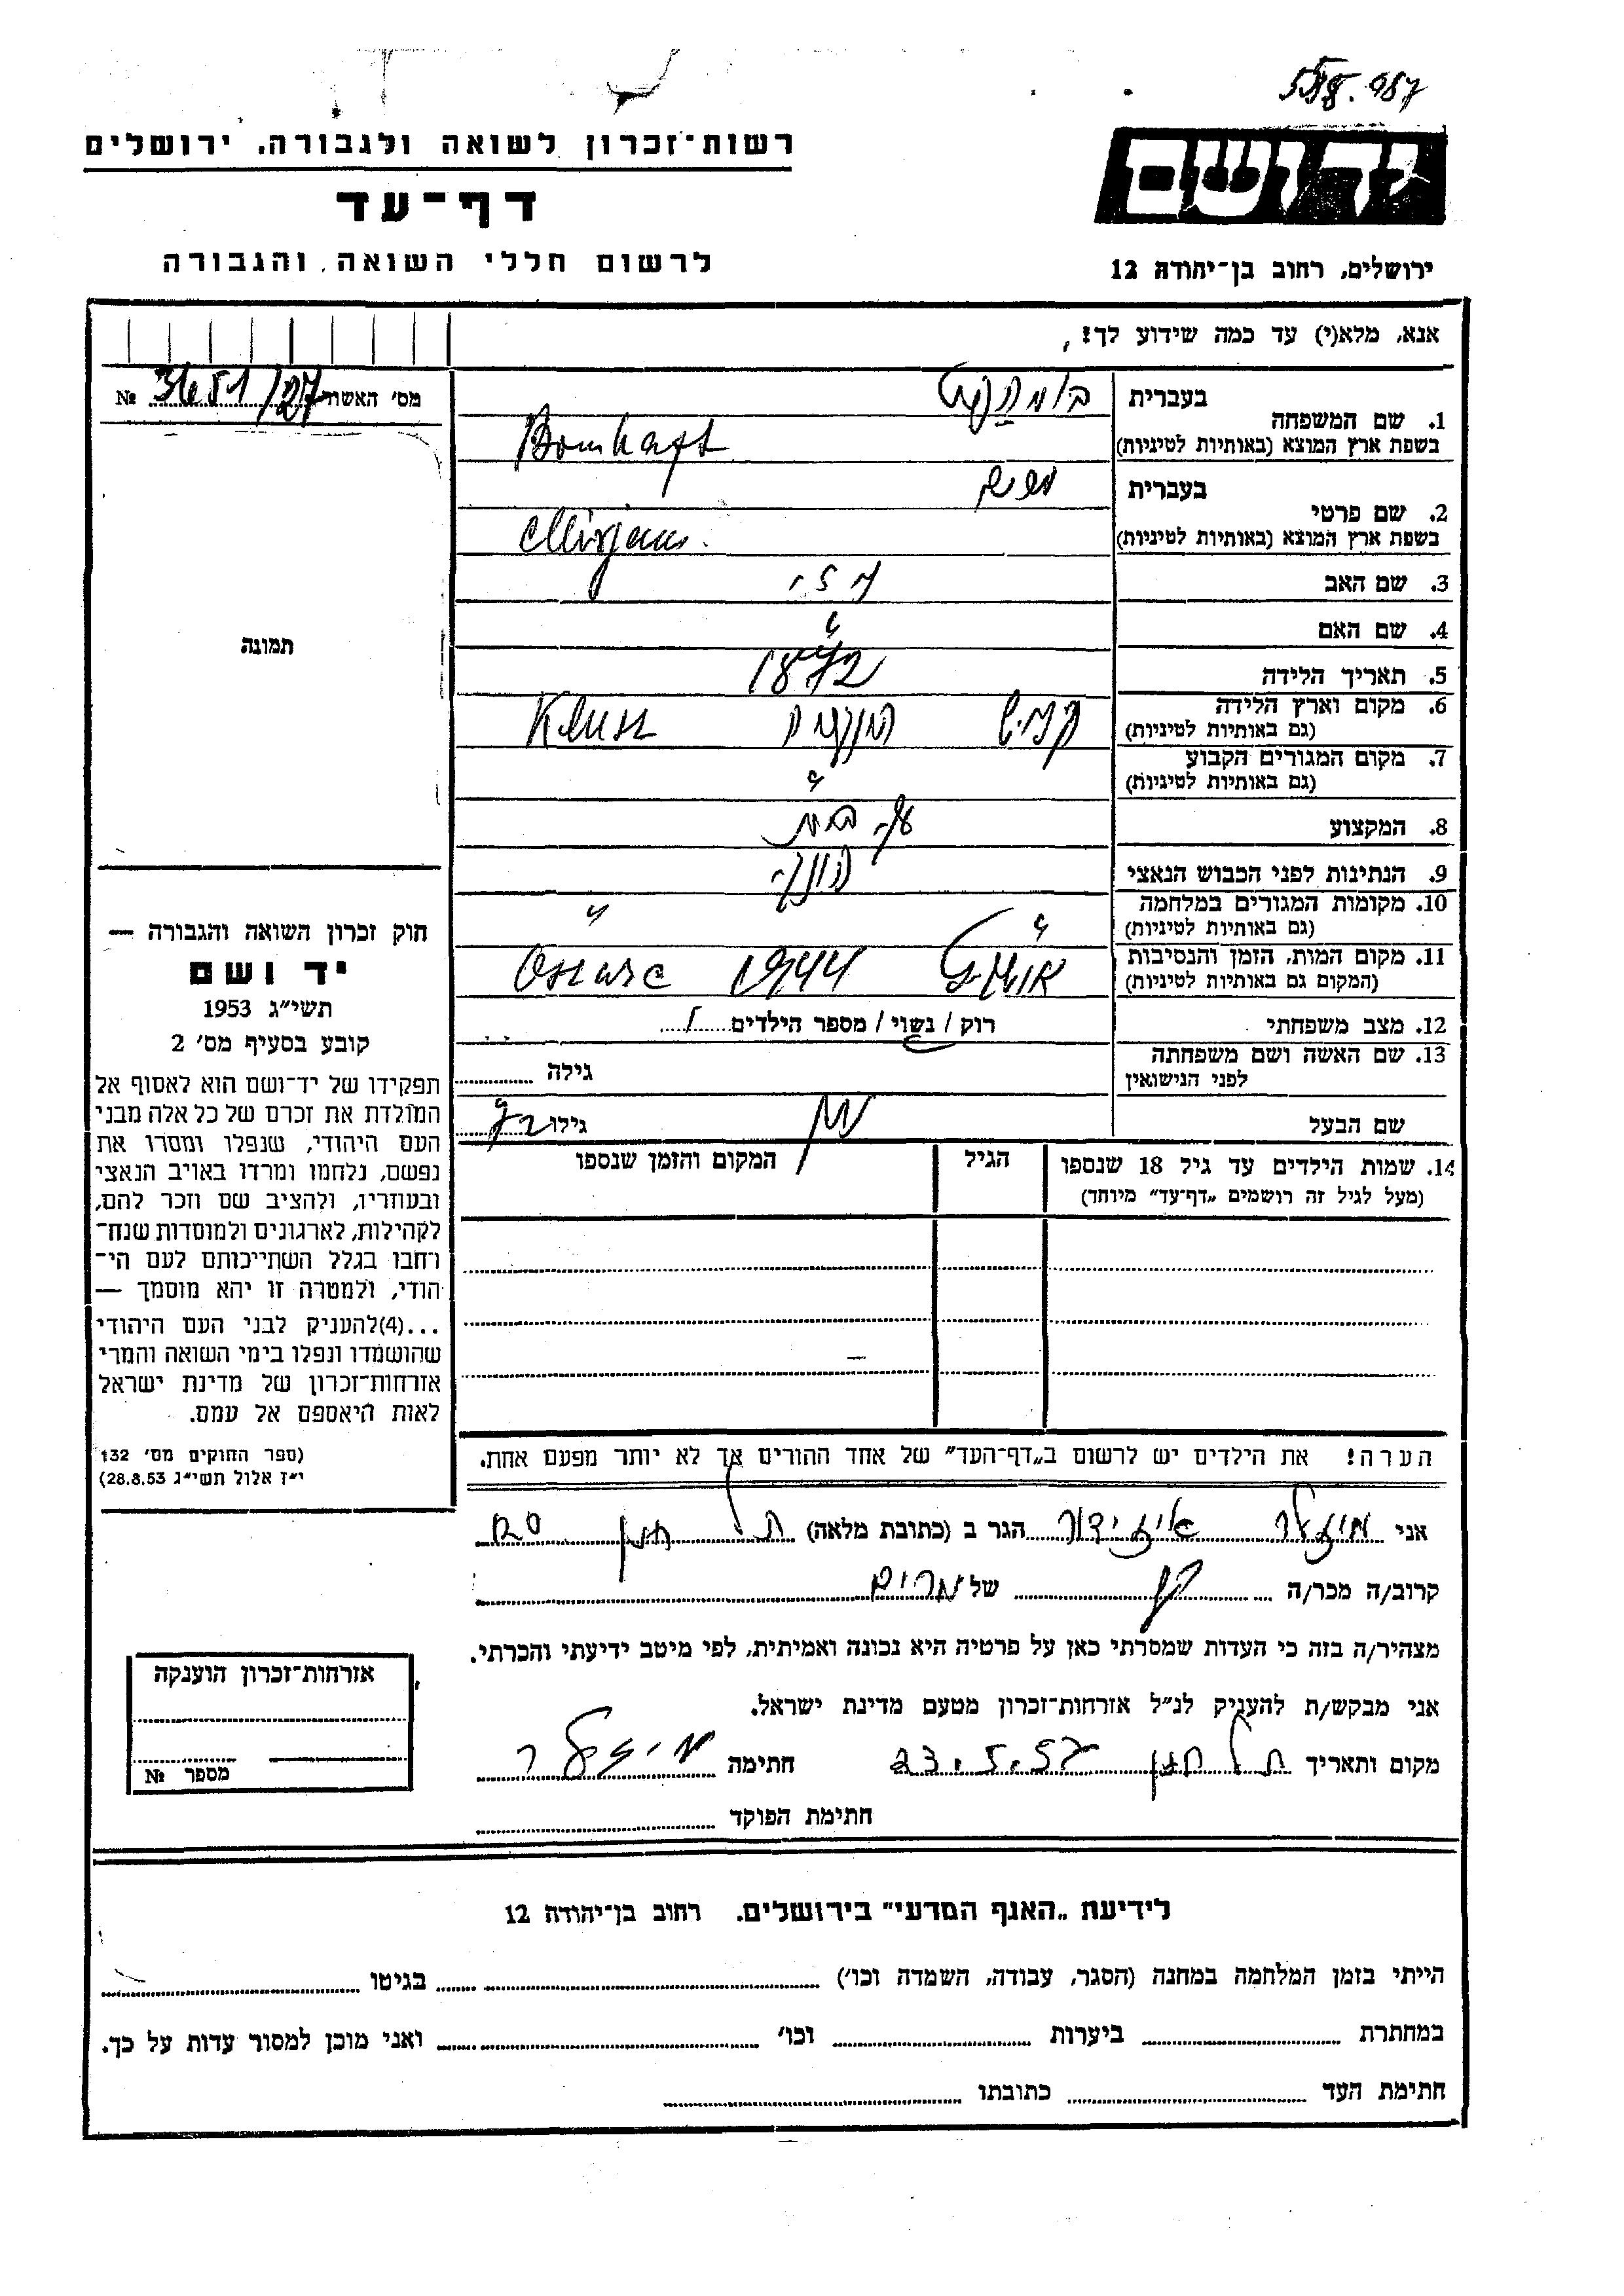 רשות־זכרון לשואה ולגבורה, ירושלים
דף־עד
לרשום חללי השואה והגבורה
יד ושם
ירושלים, רחוב בן־יהודה 12
אנא, מלא(י) עד כמה שידוע לך!
מס׳ האשה № 3651/27
תמונה
1. שם המשפחה
בעברית
בשפת ארץ המוצא (באותיות לטיניות) Bomhaft
2. שם פרטי
בעברית
בשפת ארץ המוצא (באותיות לטיניות) Mirjam
3. שם האב
4. שם האם
5. תאריך הלידה 1872
6. מקום וארץ הלידה
(גם באותיות לטיניות)
7. מקום המגורים הקבוע
(גם באותיות לטיניות)
8. המקצוע
9. הנתינות לפני הכבוש הנאצי
10. מקומות המגורים במלחמה
(גם באותיות לטיניות)
11. מקום המות, הזמן והנסיבות 1944
(המקום גם באותיות לטיניות)
12. מצב משפחתי רוק / נשוי / מספר הילדים
13. שם האשה ושם משפחתה
לפני הנישואין
גילה
שם הבעל
גילו
14. שמות הילדים עד גיל 18 שנספו
(מעל לגיל זה רושמים „דף־עד״ מיוחד)
הגיל
המקום והזמן שנספו
הערה! את הילדים יש לרשום ב„דף־העד״ של אחד ההורים אך לא יותר מפעם אחת.
חוק זכרון השואה והגבורה —
יד ושם
תשי״ג 1953
קובע בסעיף מס׳ 2
תפקידו של יד־ושם הוא לאסוף אל
המולדת את זכרם של כל אלה מבני
העם היהודי, שנפלו ומסרו את
נפשם, נלחמו ומרדו באויב הנאצי
ובעוזריו, ולהציב שם וזכר להם,
לקהילות, לארגונים ולמוסדות שנח־
רחבו בגלל השתייכותם לעם הי־
הודי, ולמטרה זו יהא מוסמך —
...(4)להעניק לבני העם היהודי
שהושמדו ונפלו בימי השואה והמרי
אזרחות־זכרון של מדינת ישראל
לאות היאספם אל עמם.
(ספר החוקים מס׳ 132
י״ז אלול תשי״ג 28.8.53)
אני הגר ב (כתובת מלאה) תל חנן
קרוב/ה מכר/ה של מרים
מצהיר/ה בזה כי העדות שמסרתי כאן על פרטיה היא נכונה ואמיתית, לפי מיטב ידיעתי והכרתי.
אני מבקש/ת להעניק לנ״ל אזרחות־זכרון מטעם מדינת ישראל.
מקום ותאריך תל חנן 23.5.57 חתימה
חתימת הפוקד
אזרחות־זכרון הוענקה
מספר №
לידיעת „האגף המדעי״ בירושלים, רחוב בן־יהודה 12
הייתי בזמן המלחמה במחנה (הסגר, עבודה, השמדה וכו׳) בגיטו
במחתרת ביערות וכו׳ ואני מוכן למסור עדות על כך.
חתימת העד כתובתו